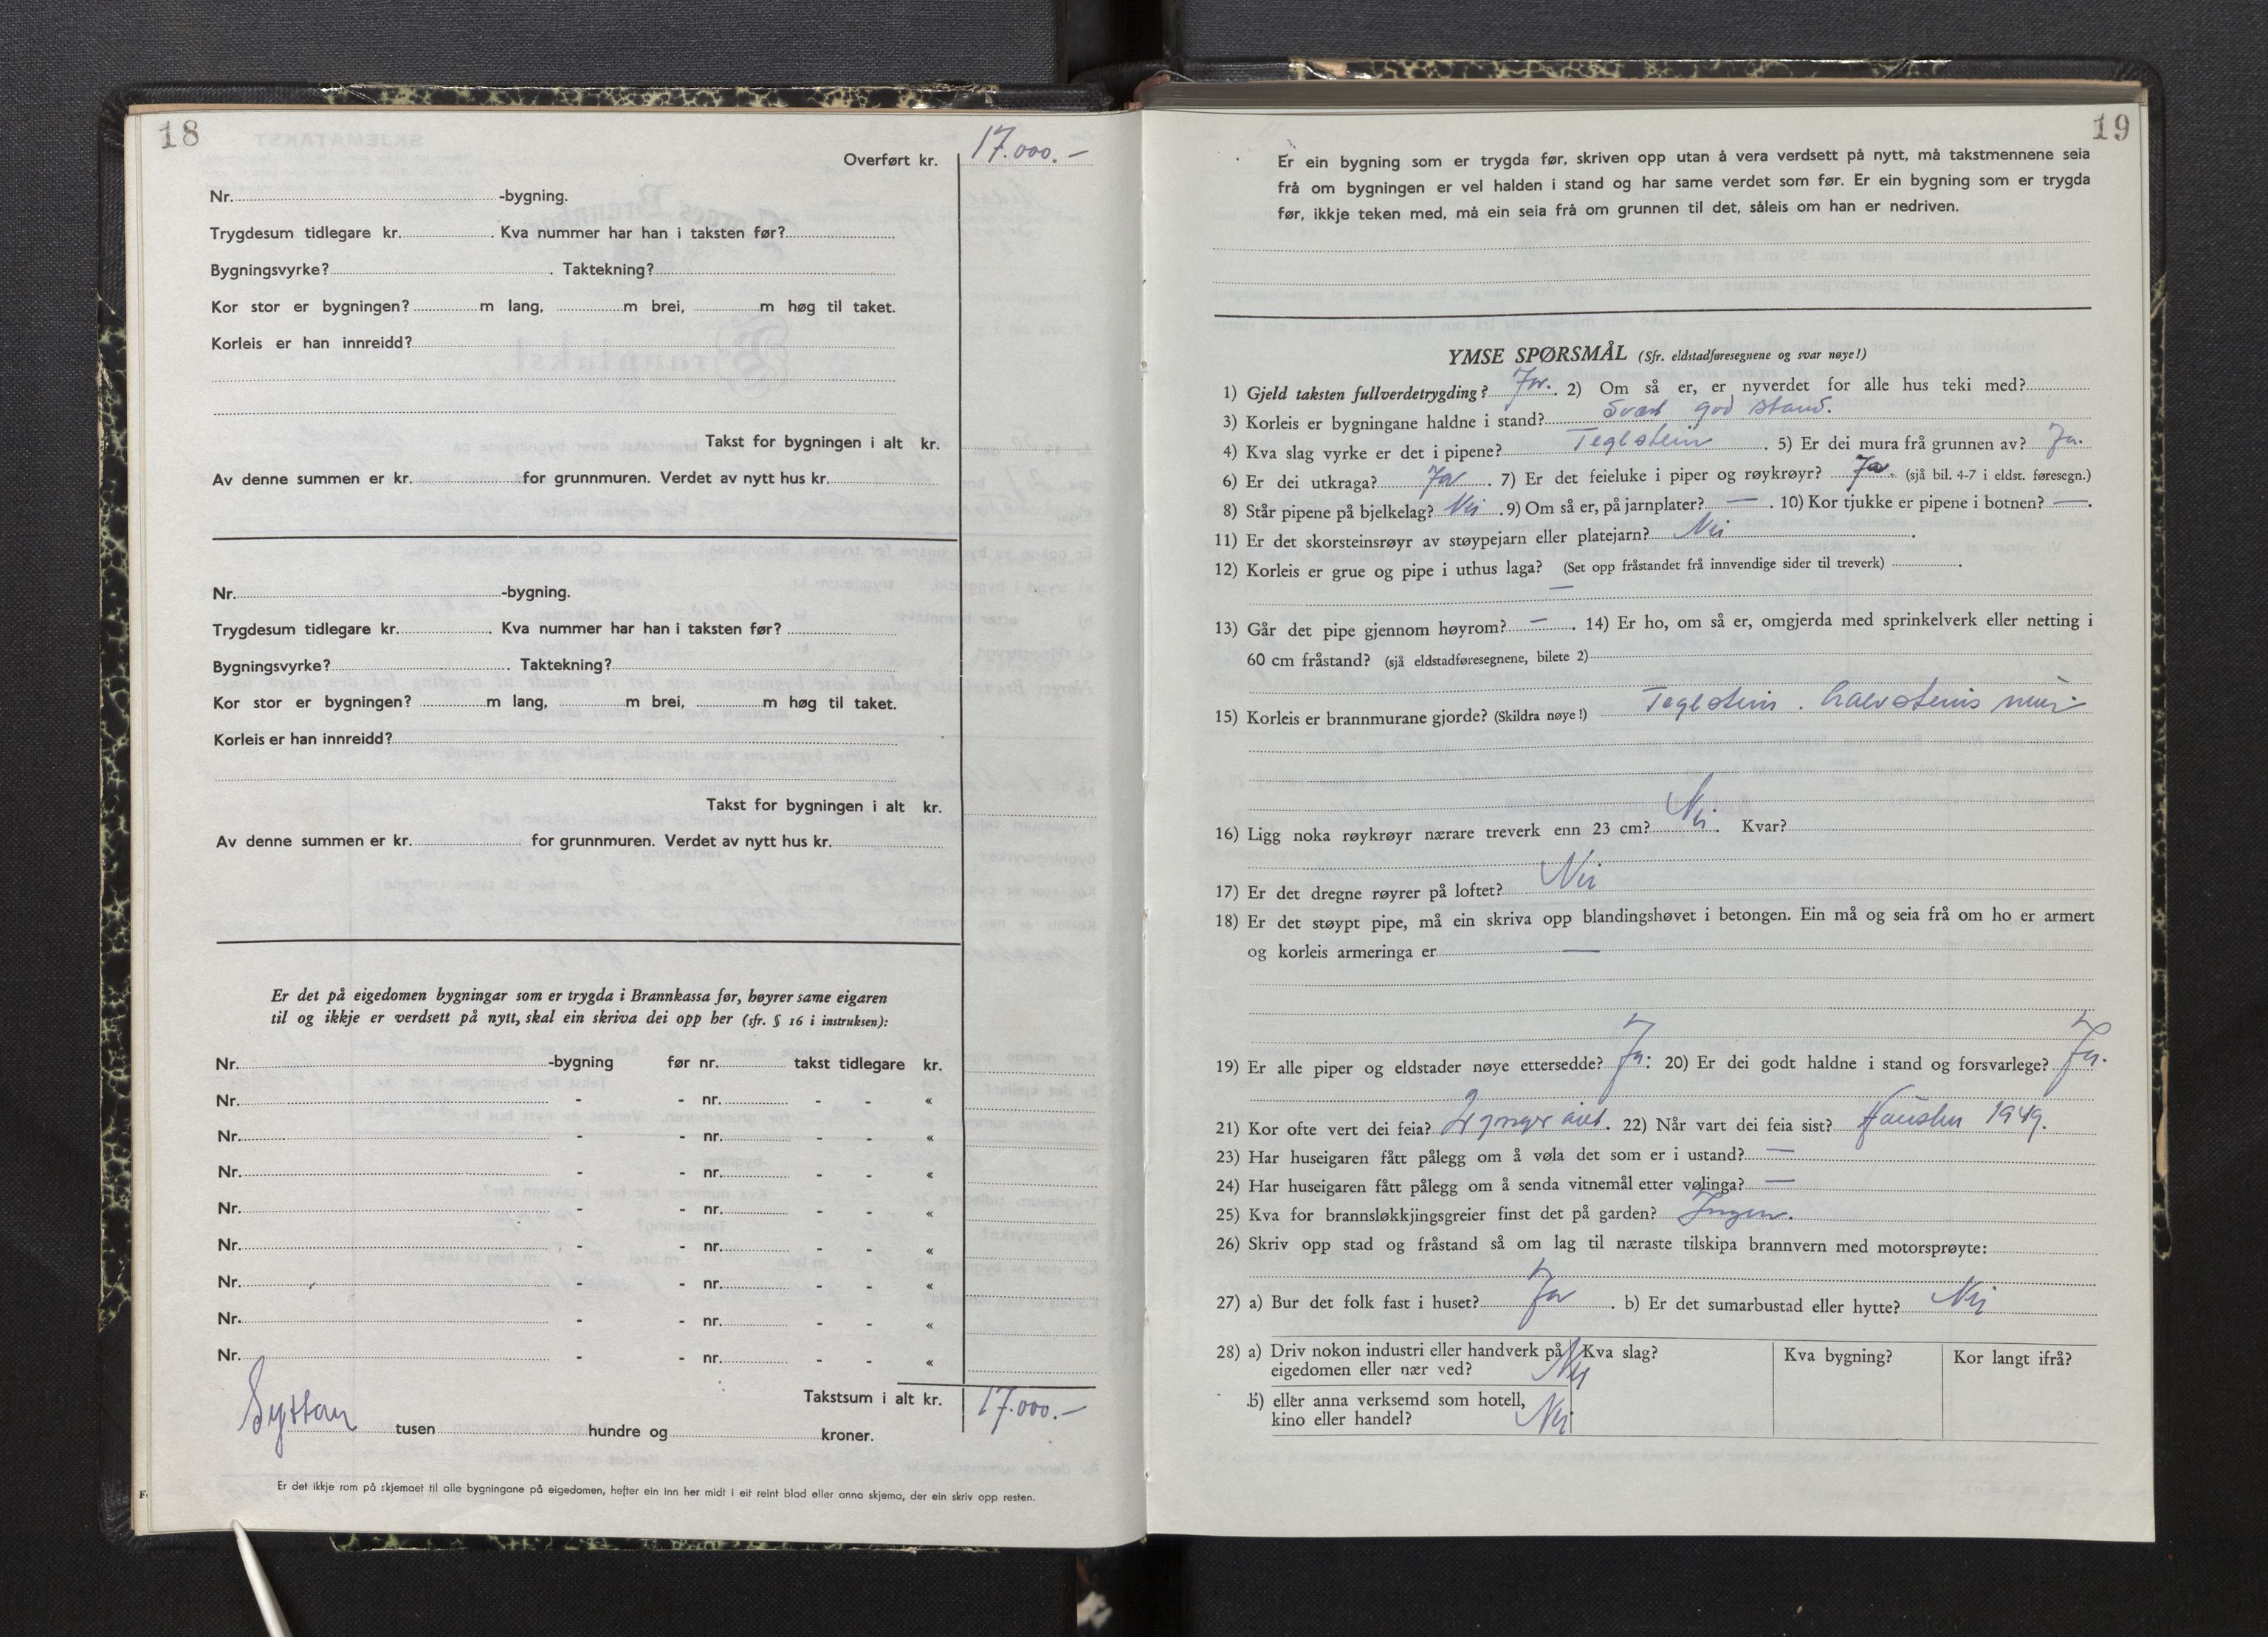 18
Overført kr. 17.000.-
Nr. -bygning.
Trygdesum tidlegare kr. . Kva nummer har han i taksten før?
Bygningsvyrke? . Taktekning?
Kor stor er bygningen? m lang, m brei, m høg til taket.
Korleis er han innreidd?
Takst for bygningen i alt kr.
Av denne summen er kr. for grunnmuren. Verdet av nytt hus kr.
Nr. -bygning.
Trygdesum tidlegare kr. . Kva nummer har han i taksten før?
Bygningsvyrke? . Taktekning?
Kor stor er bygningen? m lang, m brei, m høg til taket.
Korleis er han innreidd?
Takst for bygningen i alt kr.
Av denne summen er kr. for grunnmuren. Verdet av nytt hus kr.
Er det på eigedomen bygningar som er trygda i Brannkassa før, høyrer same eigaren
til og ikkje er verdsett på nytt, skal ein skriva dei opp her (sfr. § 16 i instruksen):
Nr. -bygning før nr. takst tidlegare kr.
Nr. - - nr. - - «
Nr. - - nr. - - «
Nr. - - nr. - - «
Nr. - - nr. - - «
Nr. - - nr. - - «
Nr. - - nr. - - «
Nr. - - nr. - - «
Nr. - - nr. - - «
Takstsum i alt kr. 17.000.-
Syttan tusen hundre og kroner.
Er det ikkje rom på skjemaet til alle bygningane på eigedomen, hefter ein inn her midt i eit reint blad eller anna skjema, der ein skriv opp resten.
19
Er ein bygning som er trygda før, skriven opp utan å vera verdsett på nytt, må takstmennene seia
frå om bygningen er vel halden i stand og har same verdet som før. Er ein bygning som er trygda
før, ikkje teken med, må ein seia frå om grunnen til det, såleis om han er nedriven.
YMSE SPØRSMÅL (Sfr. eldstadføresegnene og svar nøye!)
1) Gjeld taksten fullverdetrygding? Ja. 2) Om så er, er nyverdet for alle hus teki med?
3) Korleis er bygningane haldne i stand? Svært god stand.
4) Kva slag vyrke er det i pipene? Teglstein . 5) Er dei mura frå grunnen av? Ja.
6) Er dei utkraga? Ja . 7) Er det feieluke i piper og røykrøyr? Ja. (sjå bil. 4-7 i eldst. føresegn.)
8) Står pipene på bjelkelag? Nei . 9) Om så er, på jarnplater? — . 10) Kor tjukke er pipene i botnen? — .
11) Er det skorsteinsrøyr av støypejarn eller platejarn? Nei .
12) Korleis er grue og pipe i uthus laga? (Set opp fråstandet frå innvendige sider til treverk) .
—
13) Går det pipe gjennom høyrom? — . 14) Er ho, om så er, omgjerda med sprinkelverk eller netting i
60 cm fråstand? (sjå eldstadføresegnene, bilete 2)
15) Korleis er brannmurane gjorde? (Skildra nøye!) Teglstein. halvsteins mur
16) Ligg noka røykrøyr nærare treverk enn 23 cm? Nei. Kvar?
17) Er det dregne røyrer på loftet? Nei
18) Er det støypt pipe, må ein skriva opp blandingshøvet i betongen. Ein må og seia frå om ho er armert
og korleis armeringa er —
19) Er alle piper og eldstader nøye ettersedde? Ja. 20) Er dei godt haldne i stand og forsvarlege? Ja.
21) Kor ofte vert dei feia? 2 gonger året. 22) Når vart dei feia sist? Hausten 1949.
23) Har huseigaren fått pålegg om å vøla det som er i ustand? —
24) Har huseigaren fått pålegg om å senda vitnemål etter vølinga? —
25) Kva for brannsløkkjingsgreier finst det på garden? Ingen.
26) Skriv opp stad og fråstand så om lag til næraste tilskipa brannvern med motorsprøyte:
27) a) Bur det folk fast i huset? Ja . b) Er det sumarbustad eller hytte? Nei
28) a) Driv nokon industri eller handverk på Kva slag? Kva bygning? Kor langt ifrå?
eigedomen eller nær ved? Nei
b) eller anna verksemd som hotell,
kino eller handel? Nei